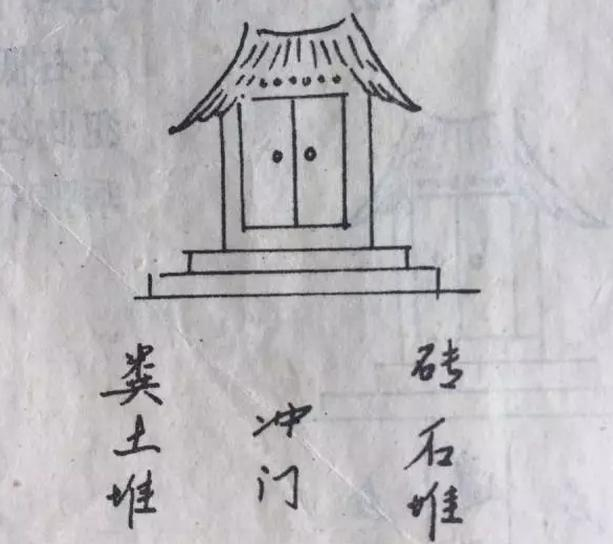 粪土堆
冲门
砖石堆